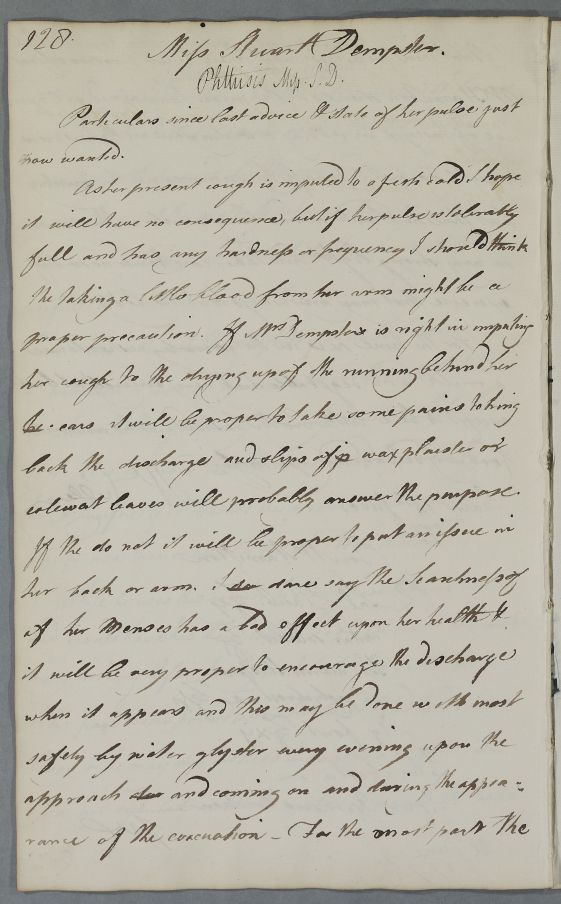 128.
Miss Stuart Dempster.
Phthisis Miss. S. D.
Particulars since last advice & state of her pulse just
now wanted.
As her present cough is imputed to a fresh cold I hope
it will have no consequence, but if her pulse is tolerably
full and has any hardness or frequency I should think
the taking a little blood from her arm might be a
proper precaution. If Mrs Dempster is right in imputing
her cough to the drying up of the running behind her
he. ears it will be proper to take some pains to bring
back the discharge and slips of wax plaister or
colewort leaves will probably answer the purpose.
If the do not it will be proper to put an issue in
her back or arm. I dare say the Scantness of
of her Menses has a bad effect upon her health &
it will be very proper to encourage the discharge
when it appears and this may be done with most
safety by water glyster every evening upon the
approach and coming on and during the appea-
rance of the evacuation – For the most part the